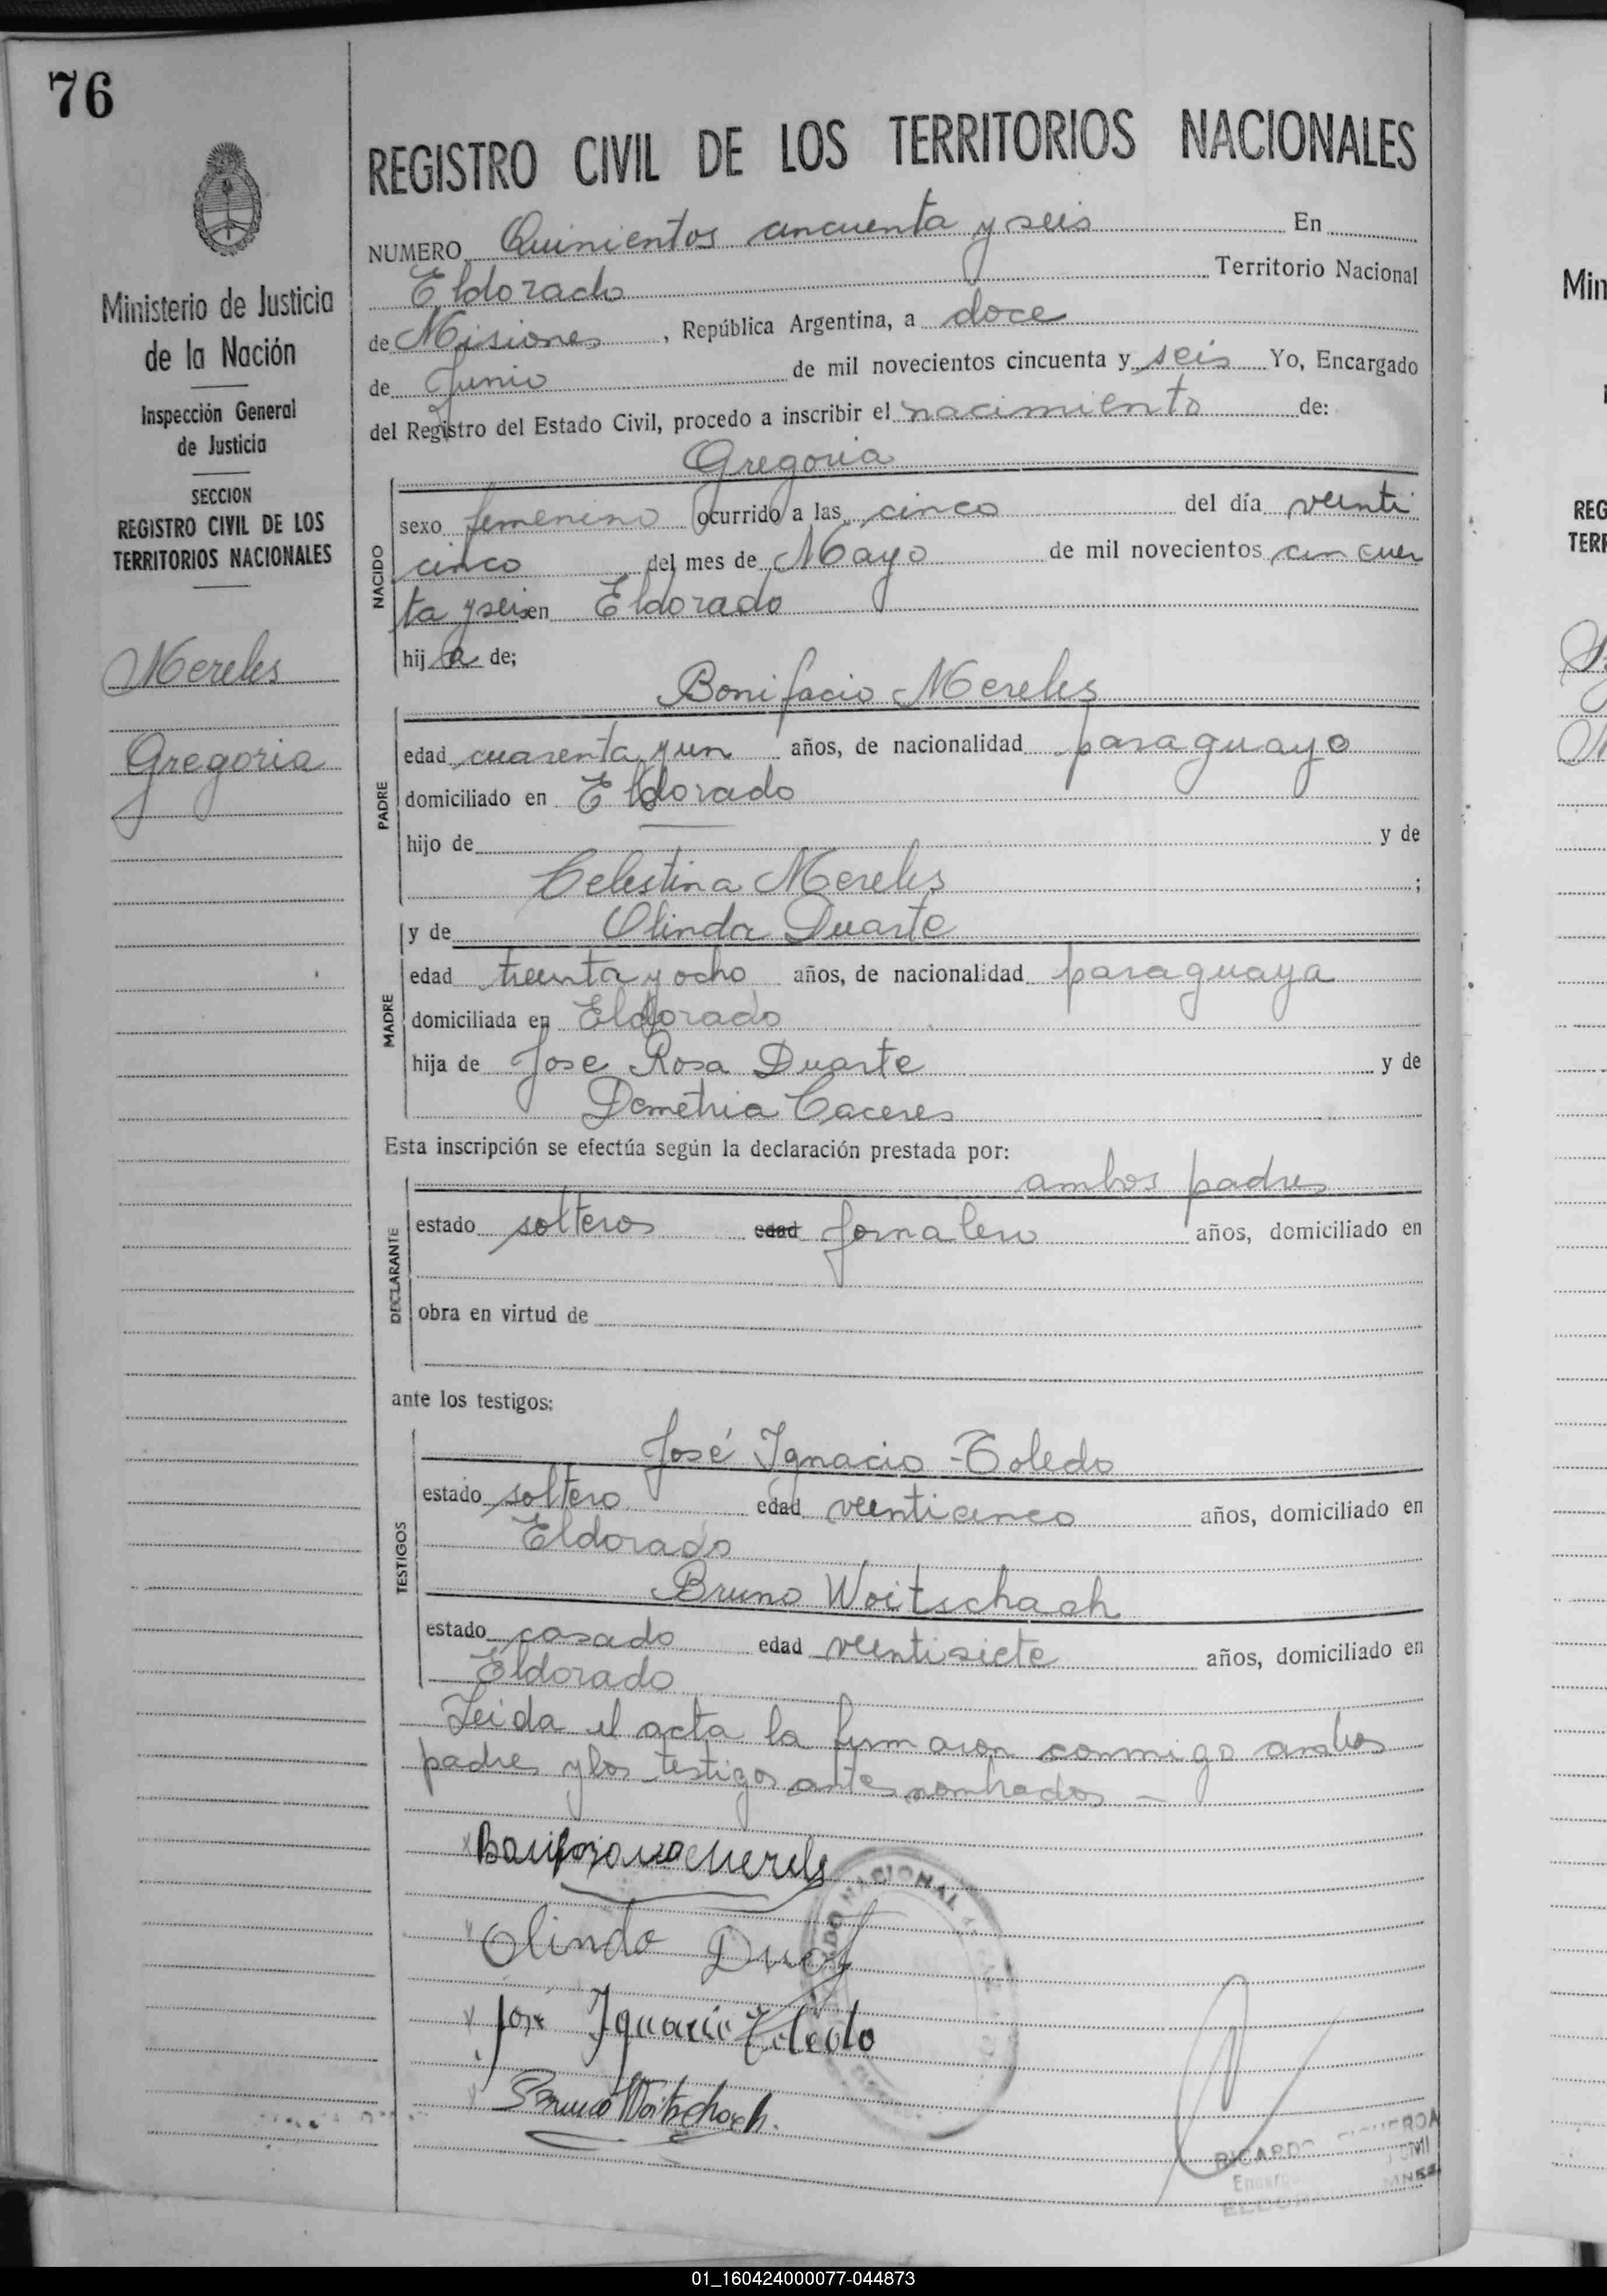 76
REGISTRO CIVIL DE LOS TERRITORIOS NACIONALES
Ministerio de Justicia
de la Nación
Inspección General
de Justicia
SECCION
REGISTRO CIVIL DE LOS
TERRITORIOS NACIONALES
Mereles
Gregoria
NUMERO Quinientos cincuenta y seis En
Eldorado Territorio Nacional
de Misiones, República Argentina, a doce
de Junio de mil novecientos cincuenta y seis Yo, Encargado
del Registro del Estado Civil, procedo a inscribir el nacimiento de:
Gregoria
NACIDO
sexo femenino ocurrido a las cinco del día veinti
cinco del mes de Mayo de mil novecientos cincuen
ta y seis en Eldorado
hija de;
Bonifacio Mereles
PADRE
edad cuarenta y un años, de nacionalidad paraguayo
domiciliado en Eldorado
hijo de y de
Celestina Mereles;
y de Olinda Duarte
MADRE
edad treinta y ocho años, de nacionalidad paraguaya
domiciliada en Eldorado
hija de Jose Rosa Duarte y de
Demetria Caceres
Esta inscripción se efectúa según la declaración prestada por:
ambos padres
DECLARANTE
estado solteros edad Jornalero años, domiciliado en
obra en virtud de
ante los testigos:
José Ignacio Toledo
TESTIGOS
estado soltero edad veinticinco años, domiciliado en
Eldorado
Bruno Woitschach
estado casado edad veintisiete años, domiciliado en
Eldorado
Leida el acta la firmaron conmigo ambos
padres y los testigos antes nombrados
Olinda
José Ignacio Toledo
Bruno Woitschach.
NACIONAL
RICARDO
Min
REG
TERR
01_160424000077-044873